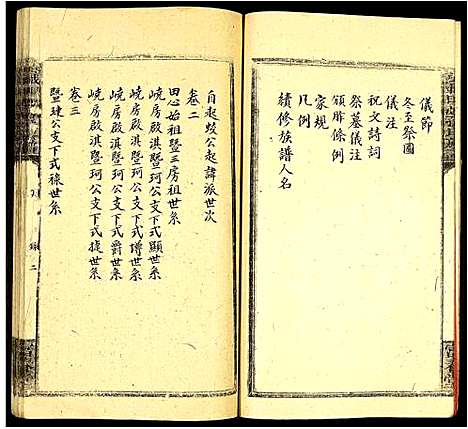 儀節
冬至祭圖
儀注
祝文詩詞
祭墓儀注
頒胙條例
家規
凡例
續修族譜人名
自起蛟公起諱派世次
卷二
田心始祖暨三房祖世系
峣房啟淇暨珂公支下式顯世系
峣房啟淇暨珂公支下式譐世系
峣房啟淇暨珂公支下式爵世系
峣房啟淇暨珂公支下式提世系
卷三
暨建公支下式祿世系